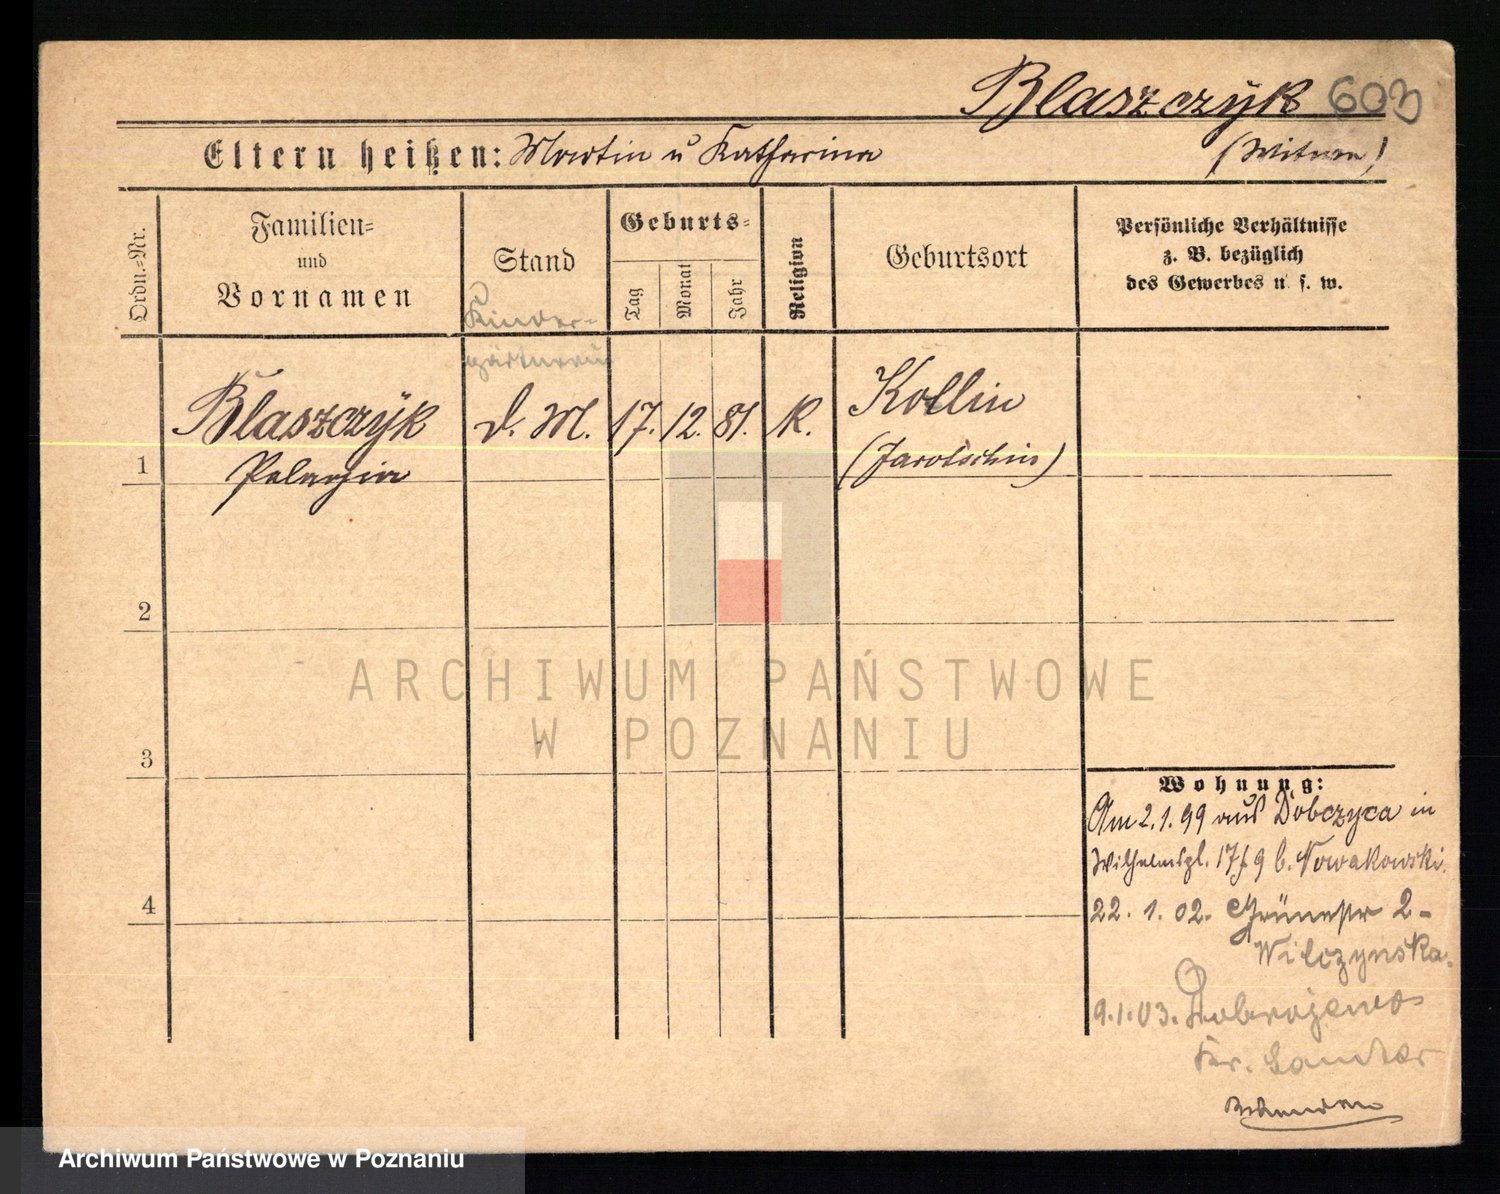 Blaszczyk 603
Eltern heißen: Martin u Katharina
Ordn.-Nr.
Familien=
und
Vornamen
Stand
Geburts=
Tag
Monat
Jahr
Religion
Geburtsort
Persönliche Verhältnisse
z. B. bezüglich
des Gewerbes u. s. w.
Kinder-
gärtnerin
1
Blaszczyk d. M. 17. 12. 81. K. Kollin
Pelagia (Jarotschin)
2
3
4
Wohnung:
Am 2.1.99 aus Dobczyca in
Wilhelmspl. 17 b. Nowakowski.
22. 1. 02. Grünestr 2-
Wilczynska.
9.1.03. Dobrojewo
Kr. Samter
ARCHIWUM PAŃSTWOWE
W POZNANIU
Archiwum Państwowe w Poznaniu